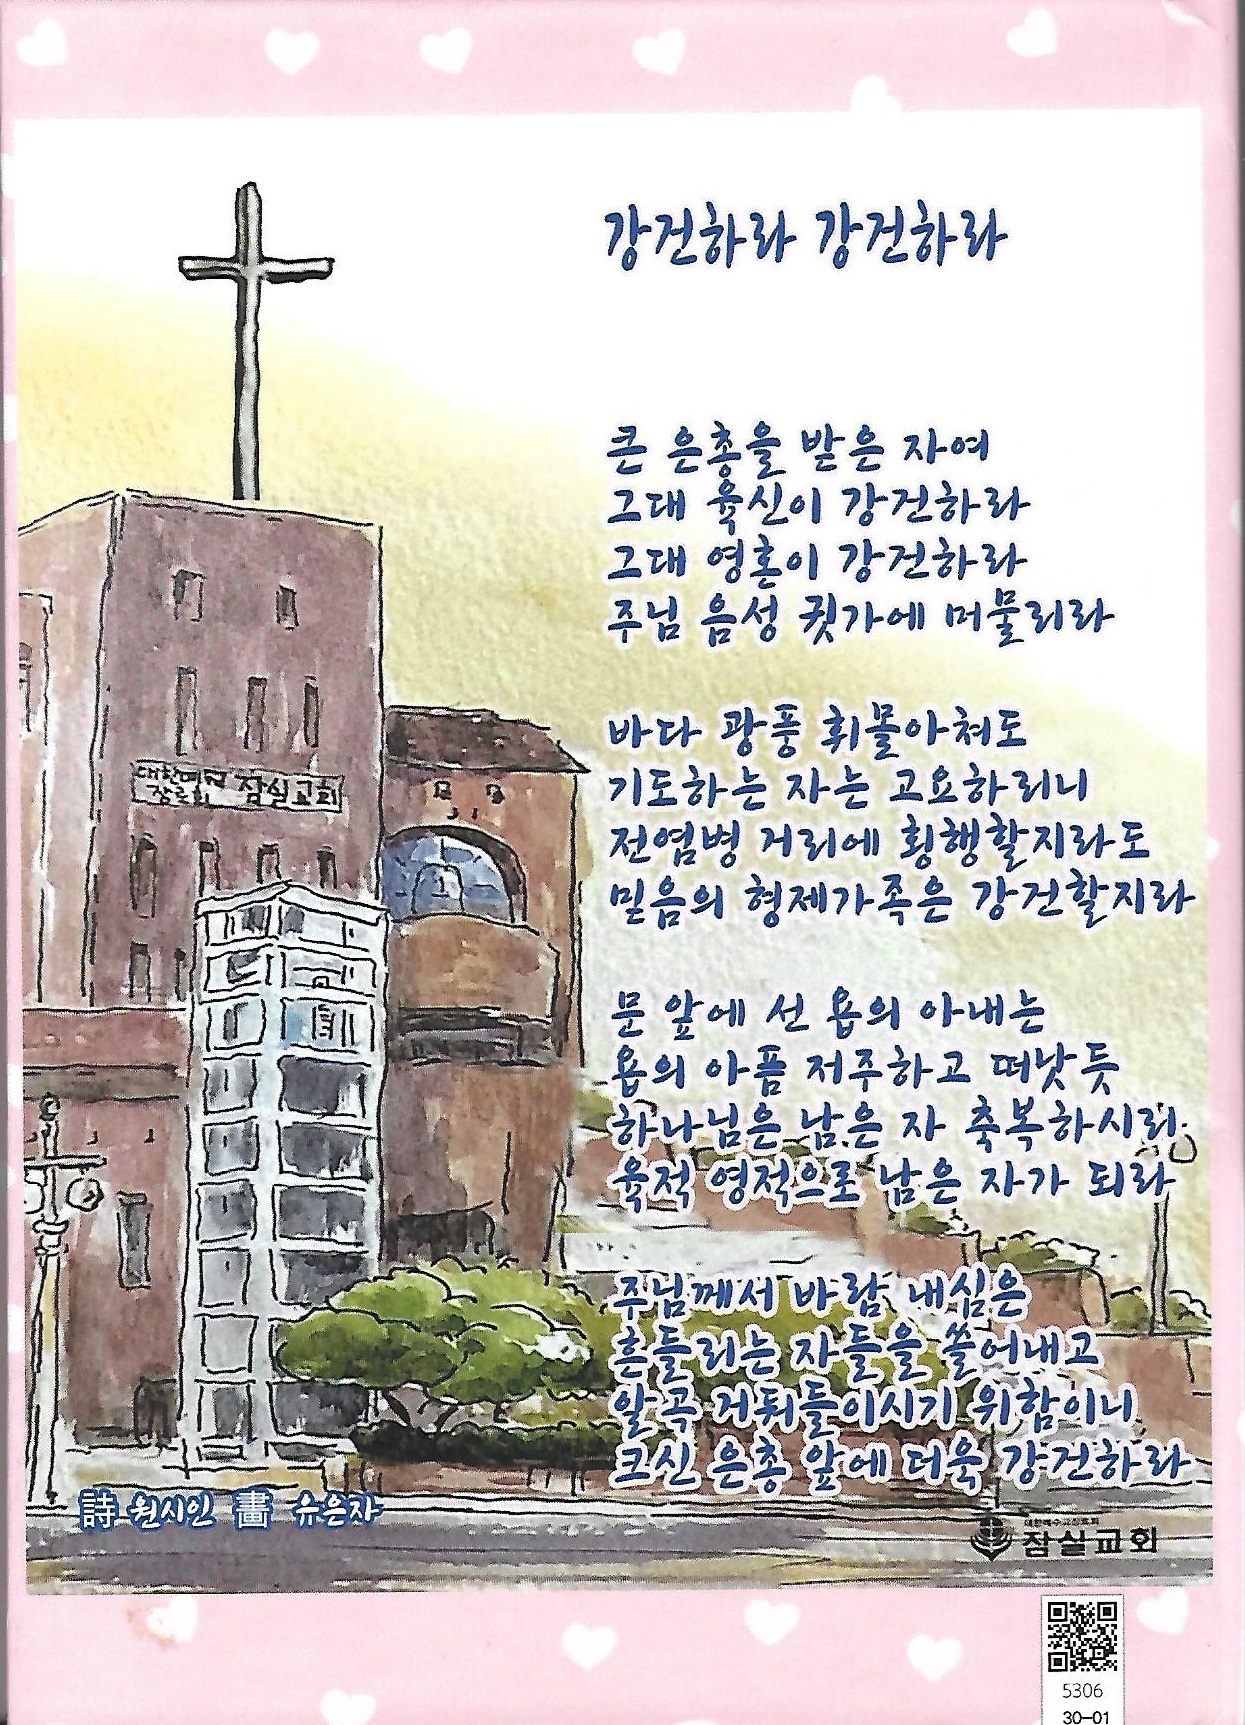 강건하라 강건하라
큰 은총을 받은 자여
그대 육신이 강건하라
그대 영혼이 강건하라
주님 음성 귓가에 머물리라
바다 광풍 휘몰아쳐도
기도하는 자는 고요하리니
전염병 거리에 횡행할지라도
믿음의 형제가족은 강건할지라
문 앞에 선 욥의 아내는
욥의 아픔 저주하고 떠났듯
하나님은 남은 자 축복하시리
육적 영적으로 남은 자가 되라
주님께서 바람 내심은
흔들리는 자들을 쓸어내고
알곡 거둬들이시기 위함이니
크신 은총 앞에 더욱 강건하라
대한예수교 잠실교회
장로회
詩 원시인 畵 슈은자
대한예수교장로회
잠실교회
5306
30-01